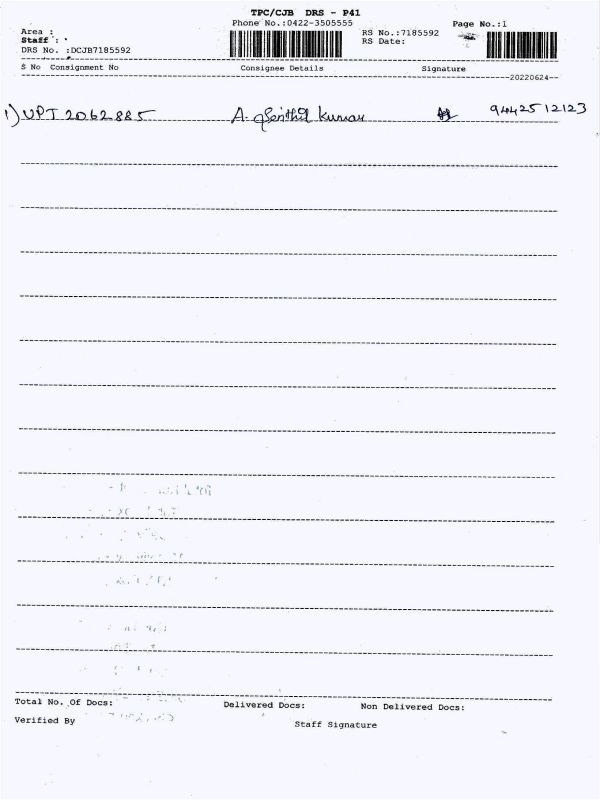 TPC/CJB DRS - P41
Phone No.:0422-3505555
Page No.:1
Area :
RS No.:7185592
Staff :
RS Date:
DRS No. :DCJB7185592
S No Consignment No Consignee Details Signature
20220624
1) UPT 2062885 A. Senthil Kumar 9442512123
Total No. Of Docs: Delivered Docs: Non Delivered Docs:
Verified By Staff Signature